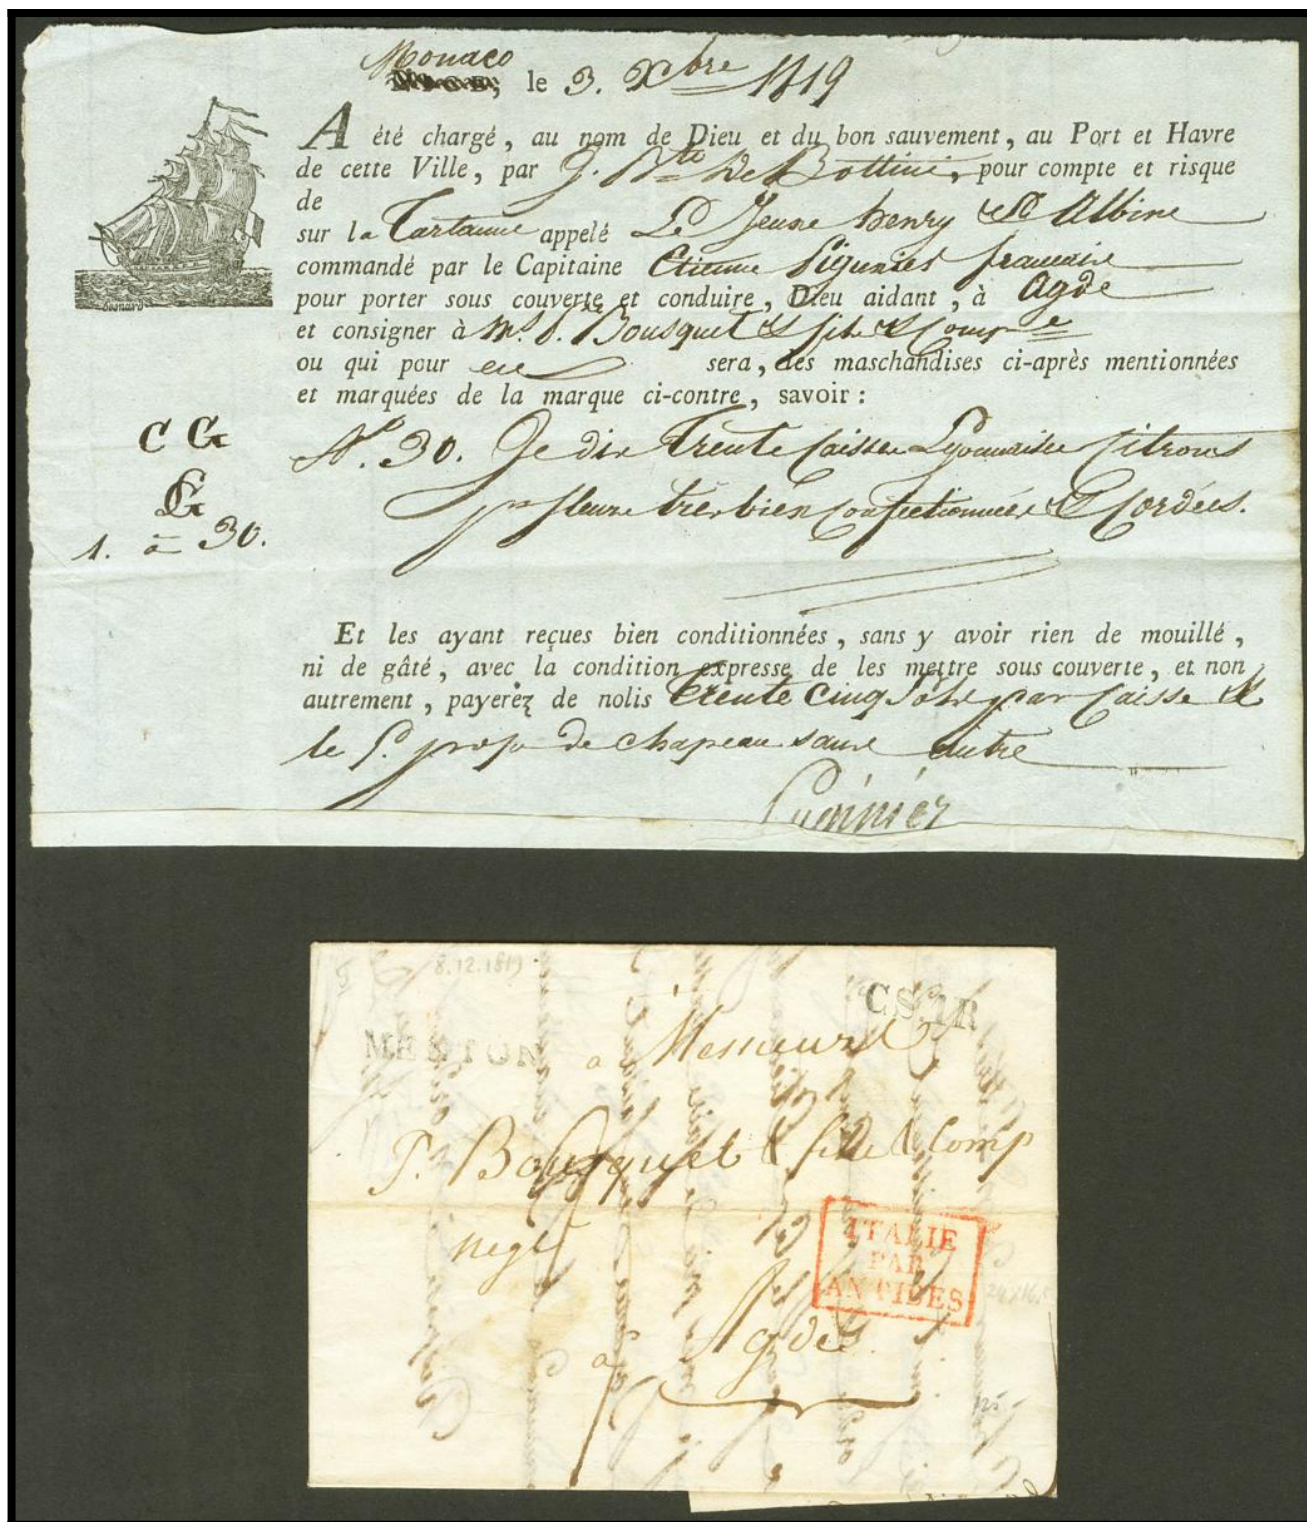 Monaco
le 3. Xbre 1819
A été chargé, au nom de Dieu et du bon sauvement, au Port et Havre
de cette Ville, par J. Bte De Bottini, pour compte et risque
de
sur la Tartanne appelé Le Jeune henry & Albine
commandé par le Capitaine Etienne francaire
pour porter sous couverte et conduire, Dieu aidant, à Agde
et consigner à Mrs. P. Bousquet & fils & Compe
ou qui pour eux sera, les maschandises ci-après mentionnées
et marquées de la marque ci-contre, savoir :
C G
G
1. à 30.
No. 30. Je dis Trente Caisses Lyonnaises Citrons
fleurs tres bien Confectionnées & Cordées.
Et les ayant reçues bien conditionnées, sans y avoir rien de mouillé,
ni de gâté, avec la condition expresse de les mettre sous couverte, et non
autrement, payerez de nolis trente cinq sols par Caisse &
le de chapeau sans autre
8.12.1819
C.S.1R
MENTON
a Messieurs
P. Bousquet & fils & Comp
negts
ITALIE
PAR
ANTIBES
24x16.5
a Agde